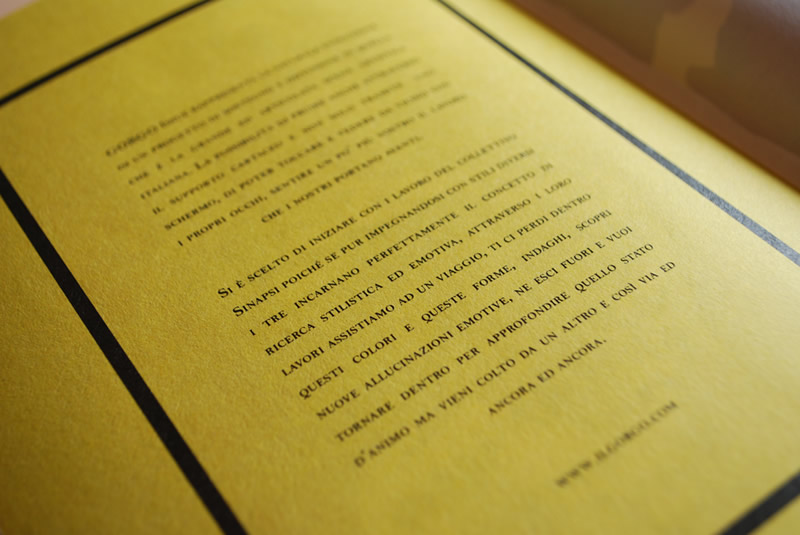 GORGO
di un progetto di
che è la grande
italiana. La possibilità di
il supporto cartaceo e
schermo, di poter toccare e vedere
i propri occhi, sentire un po' più vostro il lavoro
che i nostri portano avanti.
Si è scelto di iniziare con i lavoro del collettivo
Sinapsi poiché se pur impegnandosi con stili diversi
i tre incarnano perfettamente il concetto di
ricerca stilistica ed emotiva, attraverso i loro
lavori assistiamo ad un viaggio, ti ci perdi dentro
questi colori e queste forme, indaghi, scopri
nuove allucinazioni emotive, ne esci fuori e vuoi
tornare dentro per approfondire quello stato
d'animo ma vieni colto da un altro e così via ed
ancora ed ancora.
www.ilgorgo.com